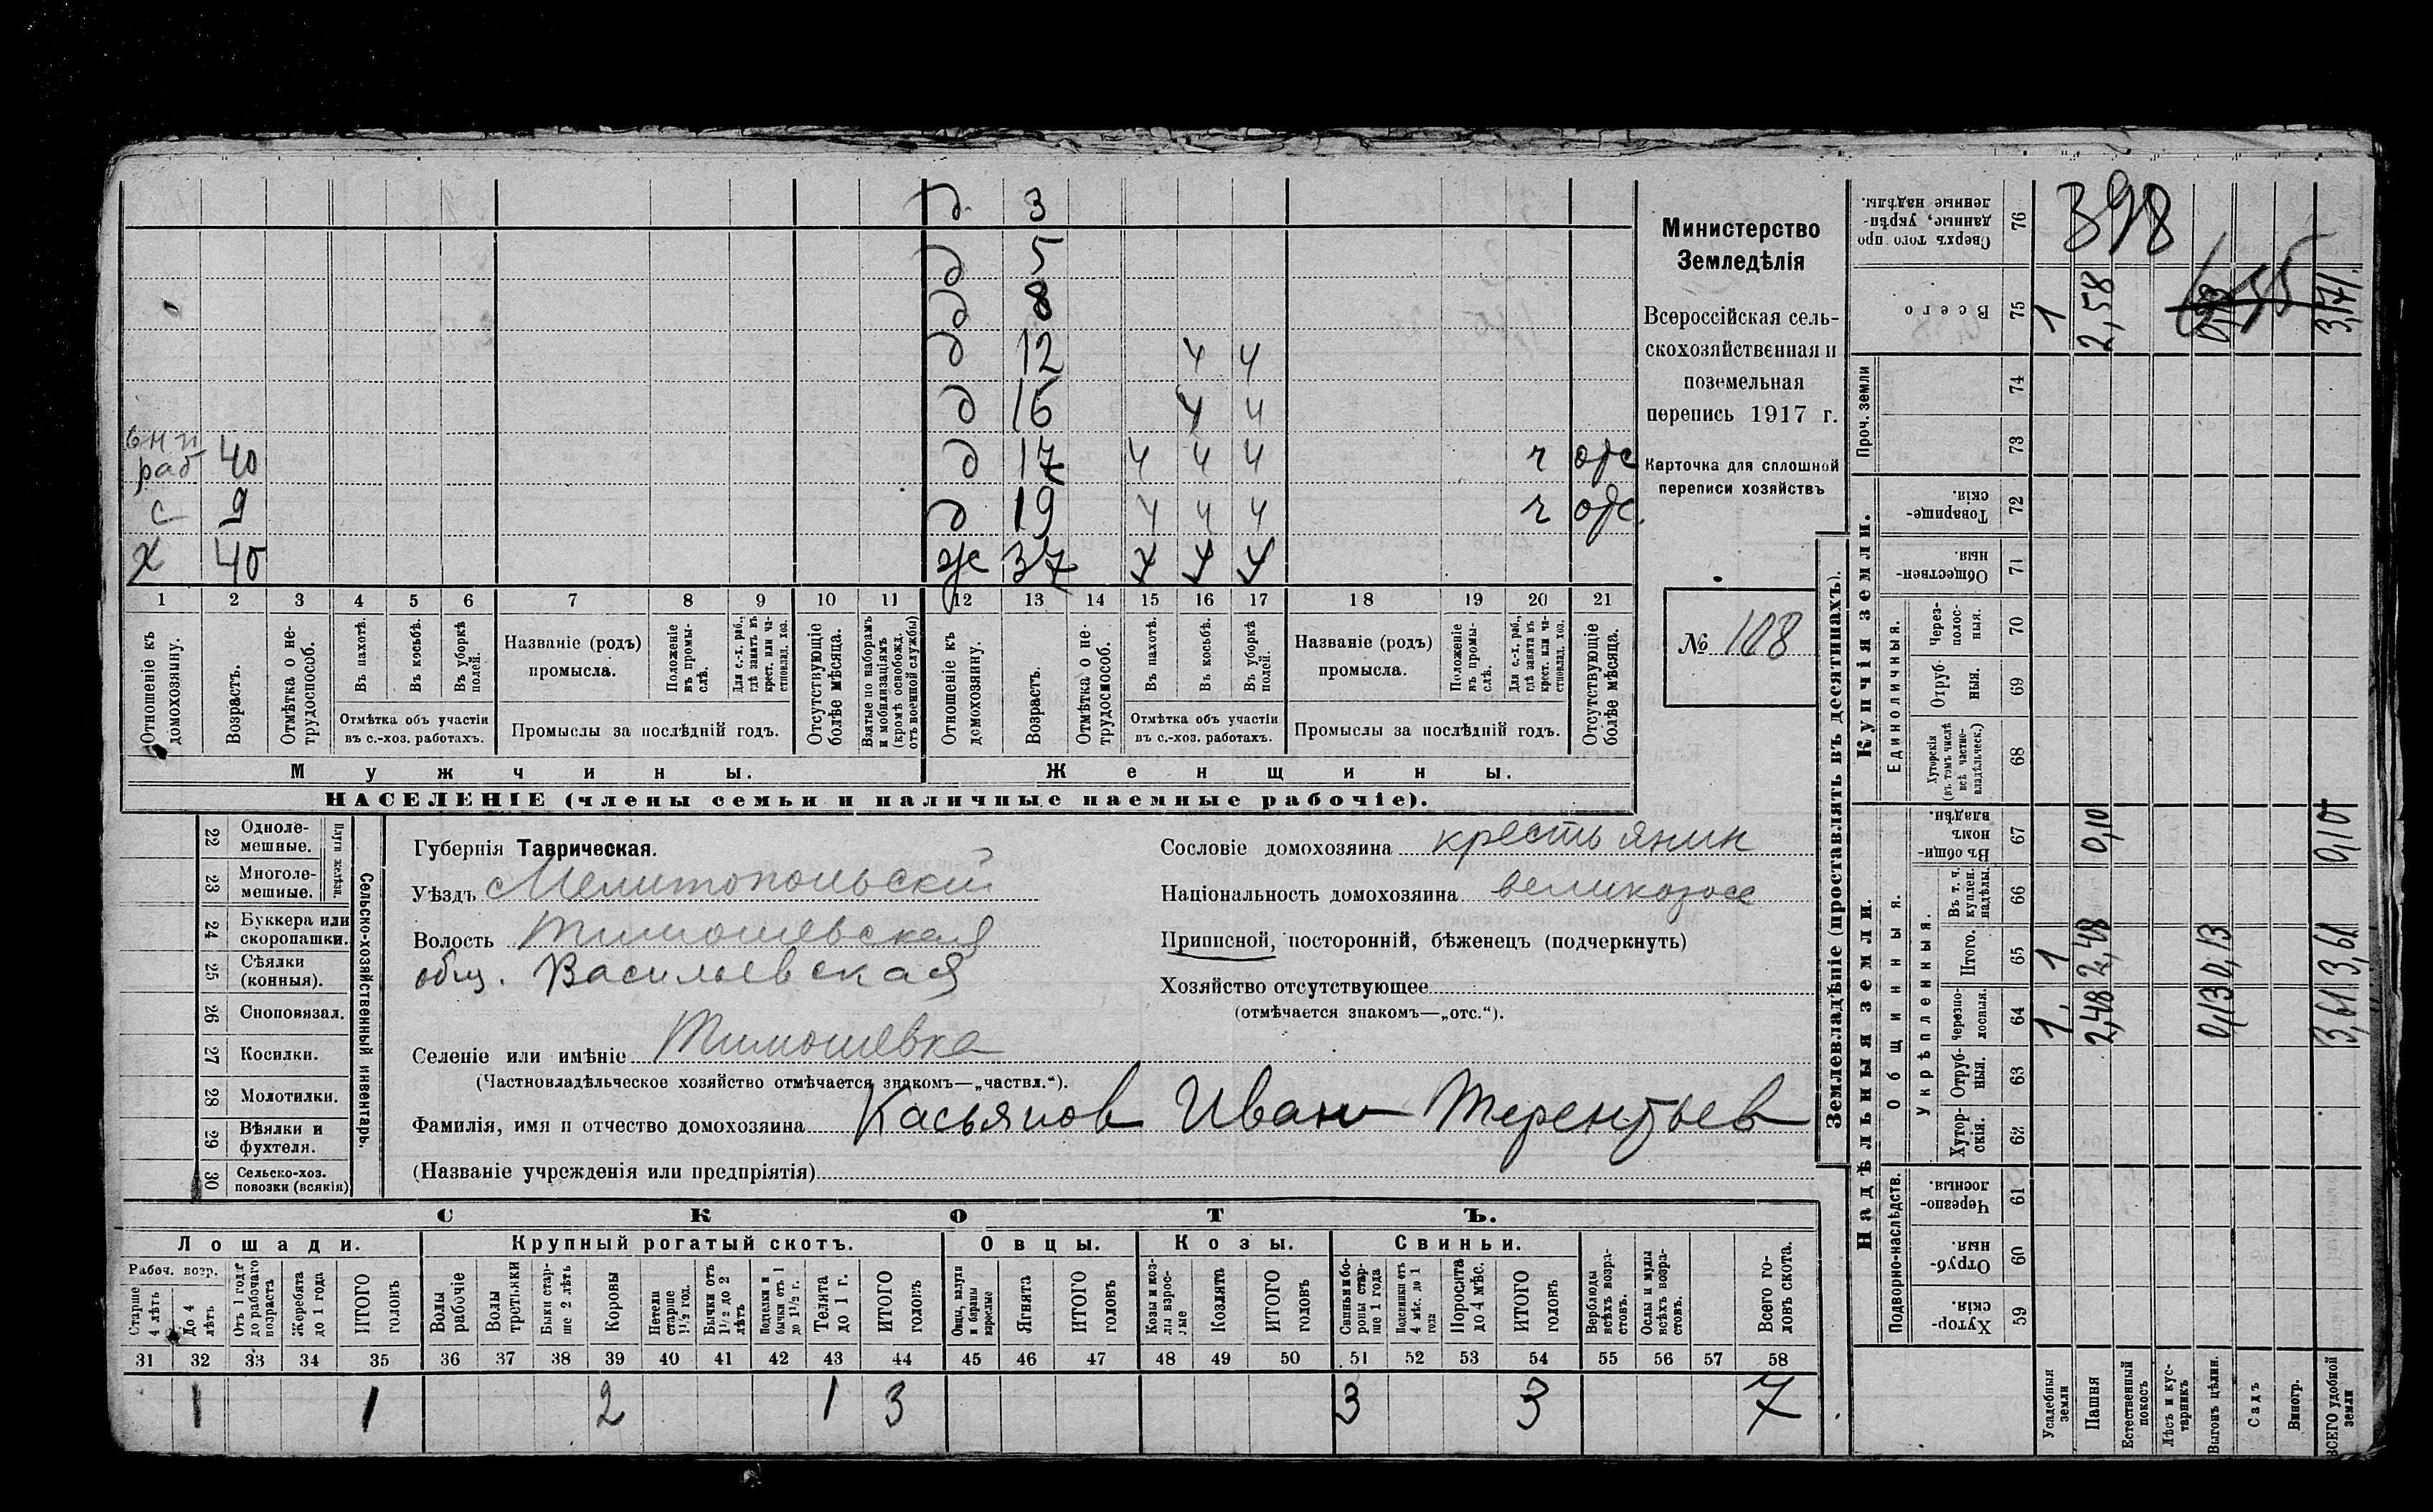 д 3
д 5
д 8
д 12 ч ч
д 16 ч ч
раб 40 д 17 ч ч ч ч отс
с 9 д 19 ч ч ч ч отс
х 40 ж 37 ч ч ч
1 2 3 4 5 6 7 8 9 10 11 12 13 14 15 16 17 18 19 20 21
Отношеніе къ домохозяину.
Возрастъ.
Отмѣтка о нетрудоспособ.
Въ пахотѣ.
Въ косьбѣ.
Въ уборкѣ полей.
Отмѣтка объ участіи въ с.-хоз. работахъ.
Названіе (родъ) промысла.
Положеніе въ промыслѣ.
Для с.-х. раб., гдѣ занятъ въ крест. или частновлад. хоз.
Промыслы за послѣдній годъ.
Отсутствующіе болѣе мѣсяца.
Взятые по наборамъ и мобилизаціямъ (кромѣ освобожд. отъ военной службы)
Отношеніе къ домохозяину.
Возрастъ.
Отмѣтка о нетрудоспособ.
Въ пахотѣ.
Въ косьбѣ.
Въ уборкѣ полей.
Отмѣтка объ участіи въ с.-хоз. работахъ.
Названіе (родъ) промысла.
Положеніе въ промыслѣ.
Для с.-х. раб., гдѣ занятъ въ крест. или частновлад. хоз.
Промыслы за послѣдній годъ.
Отсутствующіе болѣе мѣсяца.
Мужчины. Женщины.
НАСЕЛЕНІЕ (члены семьи и наличные наемные рабочіе).
Министерство
Земледѣлія
Всероссійская сель-
скохозяйственная и
поземельная
перепись 1917 г.
Карточка для сплошной
переписи хозяйствъ
№ 108
22 Одноле-
мешные.
23 Многоле-
мешные.
Плуги желѣзн.
24 Буккера или
скоропашки.
25 Сѣялки
(конныя).
26 Сноповязал.
27 Косилки.
28 Молотилки.
29 Вѣялки и
фухтеля.
30 Сельско-хоз.
повозки (всякія)
Сельско-хозяйственный инвентарь.
Губернія Таврическая.
Уѣздъ Мелитопольский
Волость Тимошевская
общ. Васильевская
Селеніе или имѣніе Тимошевка
(Частновладѣльческое хозяйство отмѣчается знакомъ—„частвл.“).
Фамилія, имя и отчество домохозяина Касьянов Иван Терентьев
(Названіе учрежденія или предпріятія)
Сословіе домохозяина крестьянин
Національность домохозяина великоросс
Приписной, посторонній, бѣженецъ (подчеркнуть)
Хозяйство отсутствующее
(отмѣчается знакомъ—„отс.“).
СКОТЪ.
Лошади. Крупный рогатый скотъ. Овцы. Козы. Свиньи.
Рабоч. возр.
Старше 4 лѣтъ
До 4 лѣтъ
Отъ 1 года до рабочаго возраста
Жеребята до 1 года
ИТОГО головъ
Волы рабочіе
Волы третьяки
Быки старше 2 лѣтъ
Коровы
Нетели старше 1½ год.
Бычки отъ 1½ до 2 лѣтъ
Подтелки и бычки отъ 1 до 1½ г.
Телята до 1 г.
ИТОГО головъ
Овцы, валухи и бараны взрослые
Ягнята
ИТОГО головъ
Козы и козлы взрослые
Козлята
ИТОГО головъ
Свиньи и боровы старше 1 года
Подсвинки отъ 4 мѣс. до 1 года
Поросята до 4 мѣс.
ИТОГО головъ
Верблюды всѣхъ возрастовъ.
Ослы и мулы всѣхъ возрастовъ.
Всего головъ скота.
31 32 33 34 35 36 37 38 39 40 41 42 43 44 45 46 47 48 49 50 51 52 53 54 55 56 57 58
1 1 2 1 3 3 3 7
Землевладѣніе (проставлять въ десятинахъ).
Надѣльныя земли. Купчія земли. Проч. земли
Подворно-наслѣдств. Общинныя. Единоличныя.
Укрѣпленныя.
Хуторскія. 59
Отрубныя. 60
Черезполосныя. 61
Хуторскія. 62
Отрубныя. 63
Черезполосныя. 64
Итого. 65
Въ т. ч. куплен. надѣлы. 66
Въ общинномъ владѣн. 67
Хуторскія (въ томъ числѣ всѣ частновладѣльческ.) 68
Отрубныя. 69
Черезполосныя. 70
Общественныя. 71
Товарищескія. 72
73
74
Всего 75
Сверхъ того проданные, укрѣпленные надѣлы. 76
Усадебныя земли 1 1 1
Пашня 2,48 2,48 0,10 2,58
Естественный покосъ
Лѣсъ и кустарникъ
Выгонъ цѣлин. 0,13 0,13 0,13
Садъ
Виногр.
ВСЕГО удобной земли 3,61 3,61 0,10 3,71
398